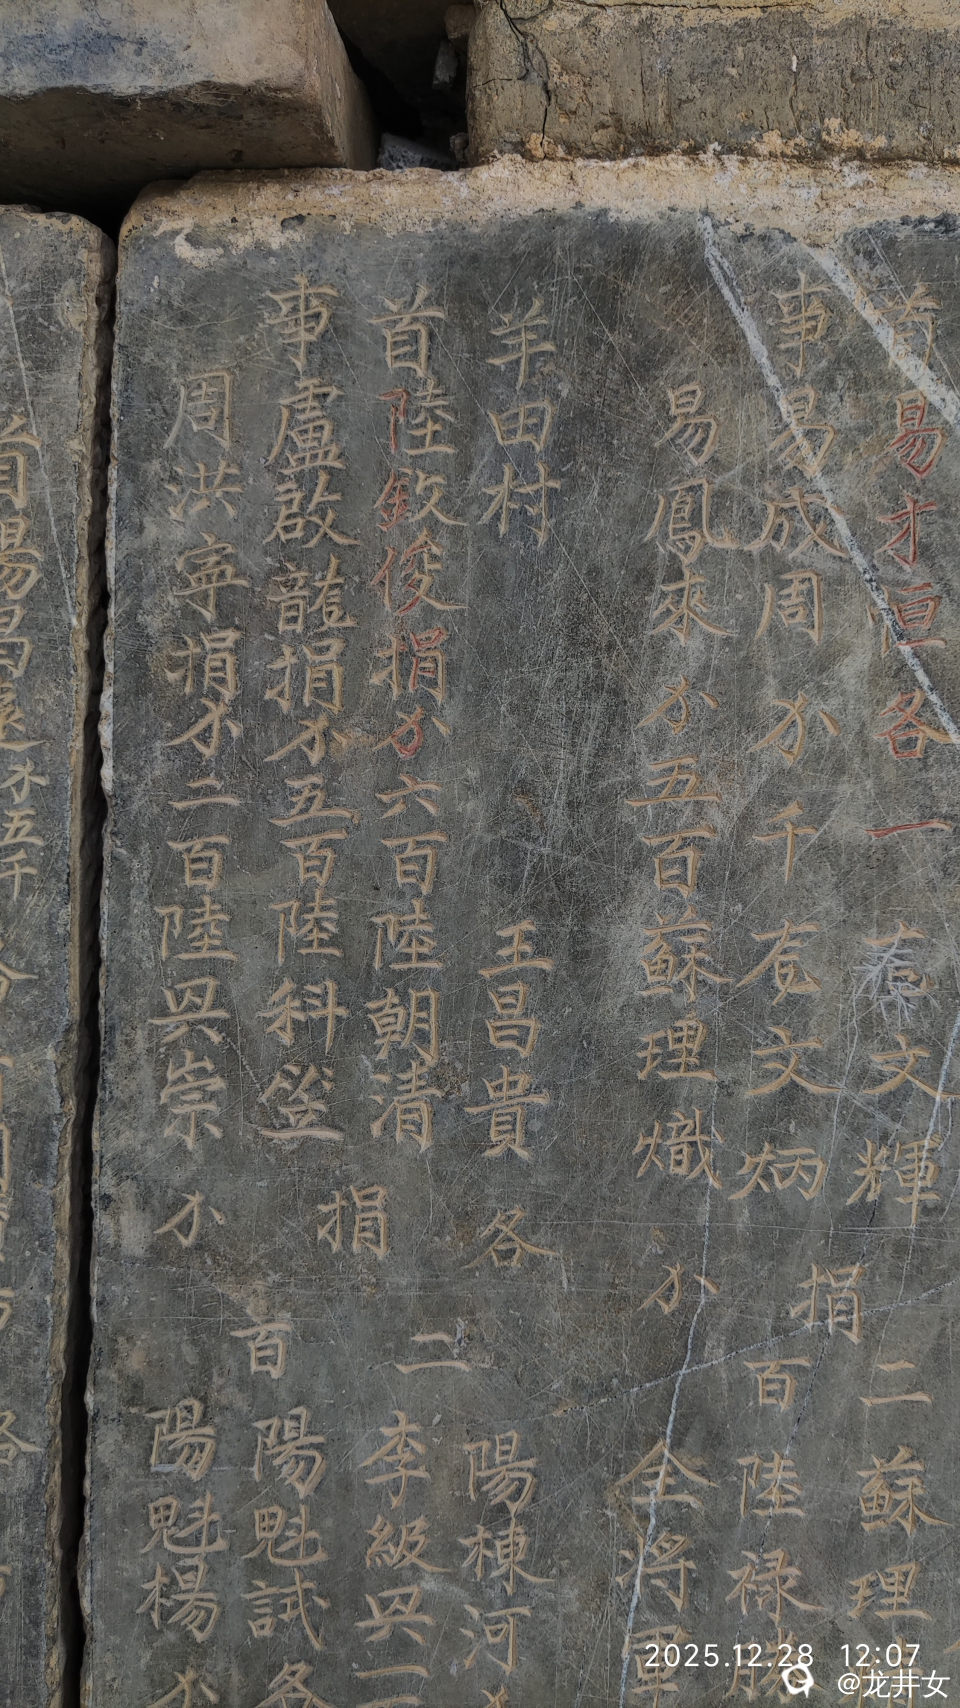 首易才恒各一 文輝 捐 二 蘇理
事易成周 小 千 袁文炳 百 陸禄勝
易鳳來 小 五百 蘇理熾 小 全將軍
羊田村 王昌貴 各 陽棟河
首陸 俊捐小六百陸朝清 二 李級興一
事盧啟龍捐小五百陸科登 捐 百 陽魁試各
周洪寧捐小二百陸興崇 小 陽魁楊小
首 小五千
2025.12.28 12:07
@龙井女